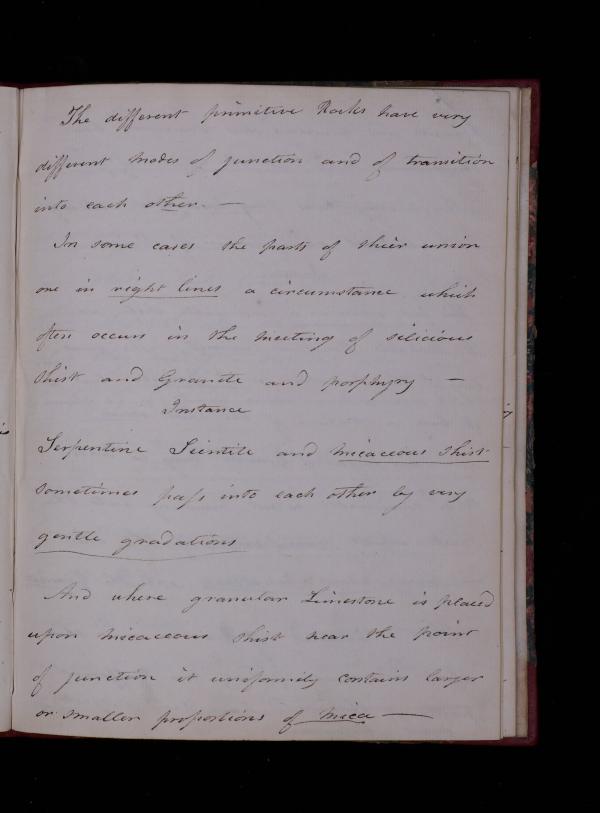 The different primitive Rocks have very
different modes of junction and of transition
into each other. —
In some cases the parts of thier union
are in right lines a circumstance which
often occurs in the meeting of silicious
shist and Granite and porphyry —
Instance
Serpentine Sientite and micaceous shist
sometimes pass into each other by very
gentle gradations
And where granular Limestone is placed
upon micaceous shist near the point
of junction it uniformily contains larger
or smaller proportions of mica —